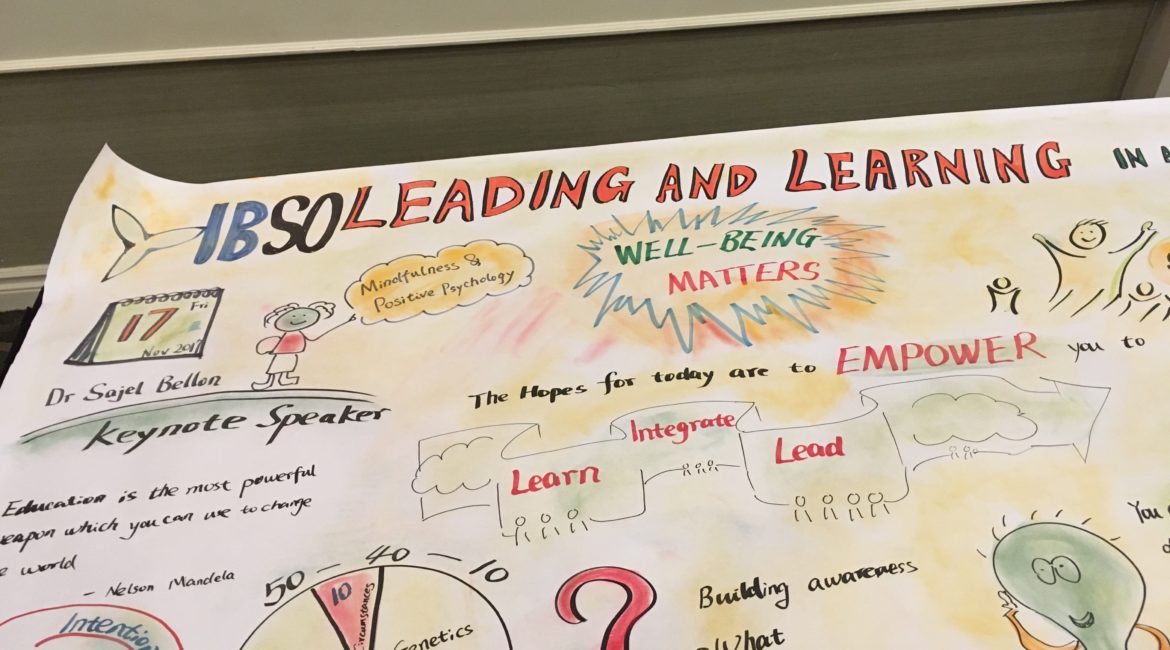 IBSO LEADING AND LEARNING IN
WELL-BEING
MATTERS
Mindfulness &
Positive Psychology
17
Fri
Nov 2017
Dr Sajel Bellon
Keynote Speaker
The Hopes for today are to EMPOWER you to
Learn
Integrate
Lead
Education is the most powerful
weapon which you can use to change
world
- Nelson Mandela
Intention
50 - 40 - 10
10
Circumstances
Genetics
?
Building awareness
What
You